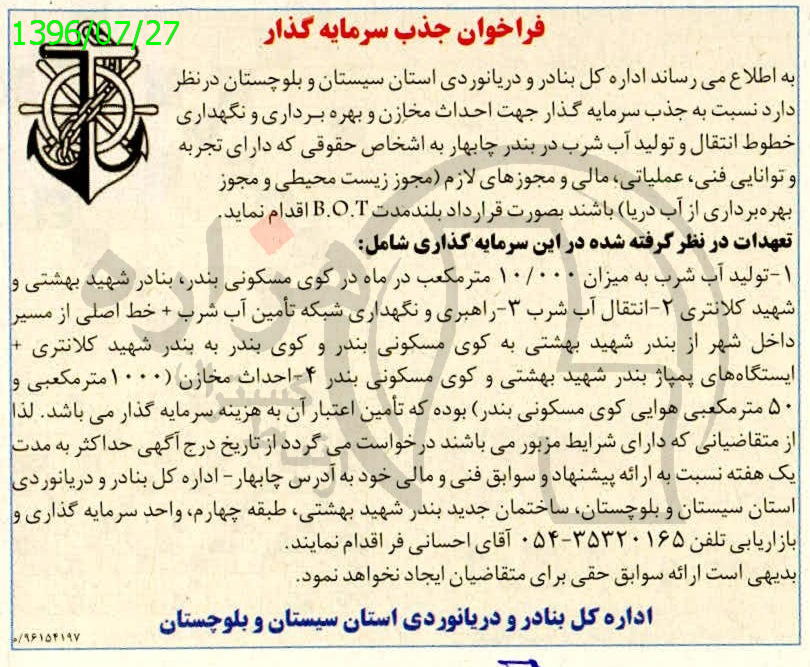 1396/07/27
فراخوان جذب سرمایه گذار
به اطلاع می رساند اداره کل بنادر و دریانوردی استان سیستان و بلوچستان درنظر
دارد نسبت به جذب سرمایه گذار جهت احداث مخازن و بهره برداری و نگهداری
خطوط انتقال و تولید آب شرب در بندر چابهار به اشخاص حقوقی که دارای تجربه
و توانایی فنی، عملیاتی، مالی و مجوزهای لازم (مجوز زیست محیطی و مجوز
بهره‌برداری از آب دریا) باشند بصورت قرارداد بلندمدت B.O.T اقدام نماید.
تعهدات در نظر گرفته شده در این سرمایه گذاری شامل:
۱-تولید آب شرب به میزان ۱۰/۰۰۰ مترمکعب در ماه در کوی مسکونی بندر، بنادر شهید بهشتی و
شهید کلانتری ۲-انتقال آب شرب ۳-راهبری و نگهداری شبکه تأمین آب شرب + خط اصلی از مسیر
داخل شهر از بندر شهید بهشتی به کوی مسکونی بندر و کوی بندر به بندر شهید کلانتری +
ایستگاه‌های پمپاژ بندر شهید بهشتی و کوی مسکونی بندر ۴-احداث مخازن (۱۰۰۰مترمکعبی و
۵۰ مترمکعبی هوایی کوی مسکونی بندر) بوده که تأمین اعتبار آن به هزینه سرمایه گذار می باشد. لذا
از متقاضیانی که دارای شرایط مزبور می باشند درخواست می گردد از تاریخ درج آگهی حداکثر به مدت
یک هفته نسبت به ارائه پیشنهاد و سوابق فنی و مالی خود به آدرس چابهار- اداره کل بنادر و دریانوردی
استان سیستان و بلوچستان، ساختمان جدید بندر شهید بهشتی، طبقه چهارم، واحد سرمایه گذاری و
بازاریابی تلفن ۳۵۳۲۰۱۶۵-۰۵۴ آقای احسانی فر اقدام نمایند.
بدیهی است ارائه سوابق حقی برای متقاضیان ایجاد نخواهد نمود.
اداره کل بنادر و دریانوردی استان سیستان و بلوچستان
۹۶۱۵۴۱۹۷/م
هزاره